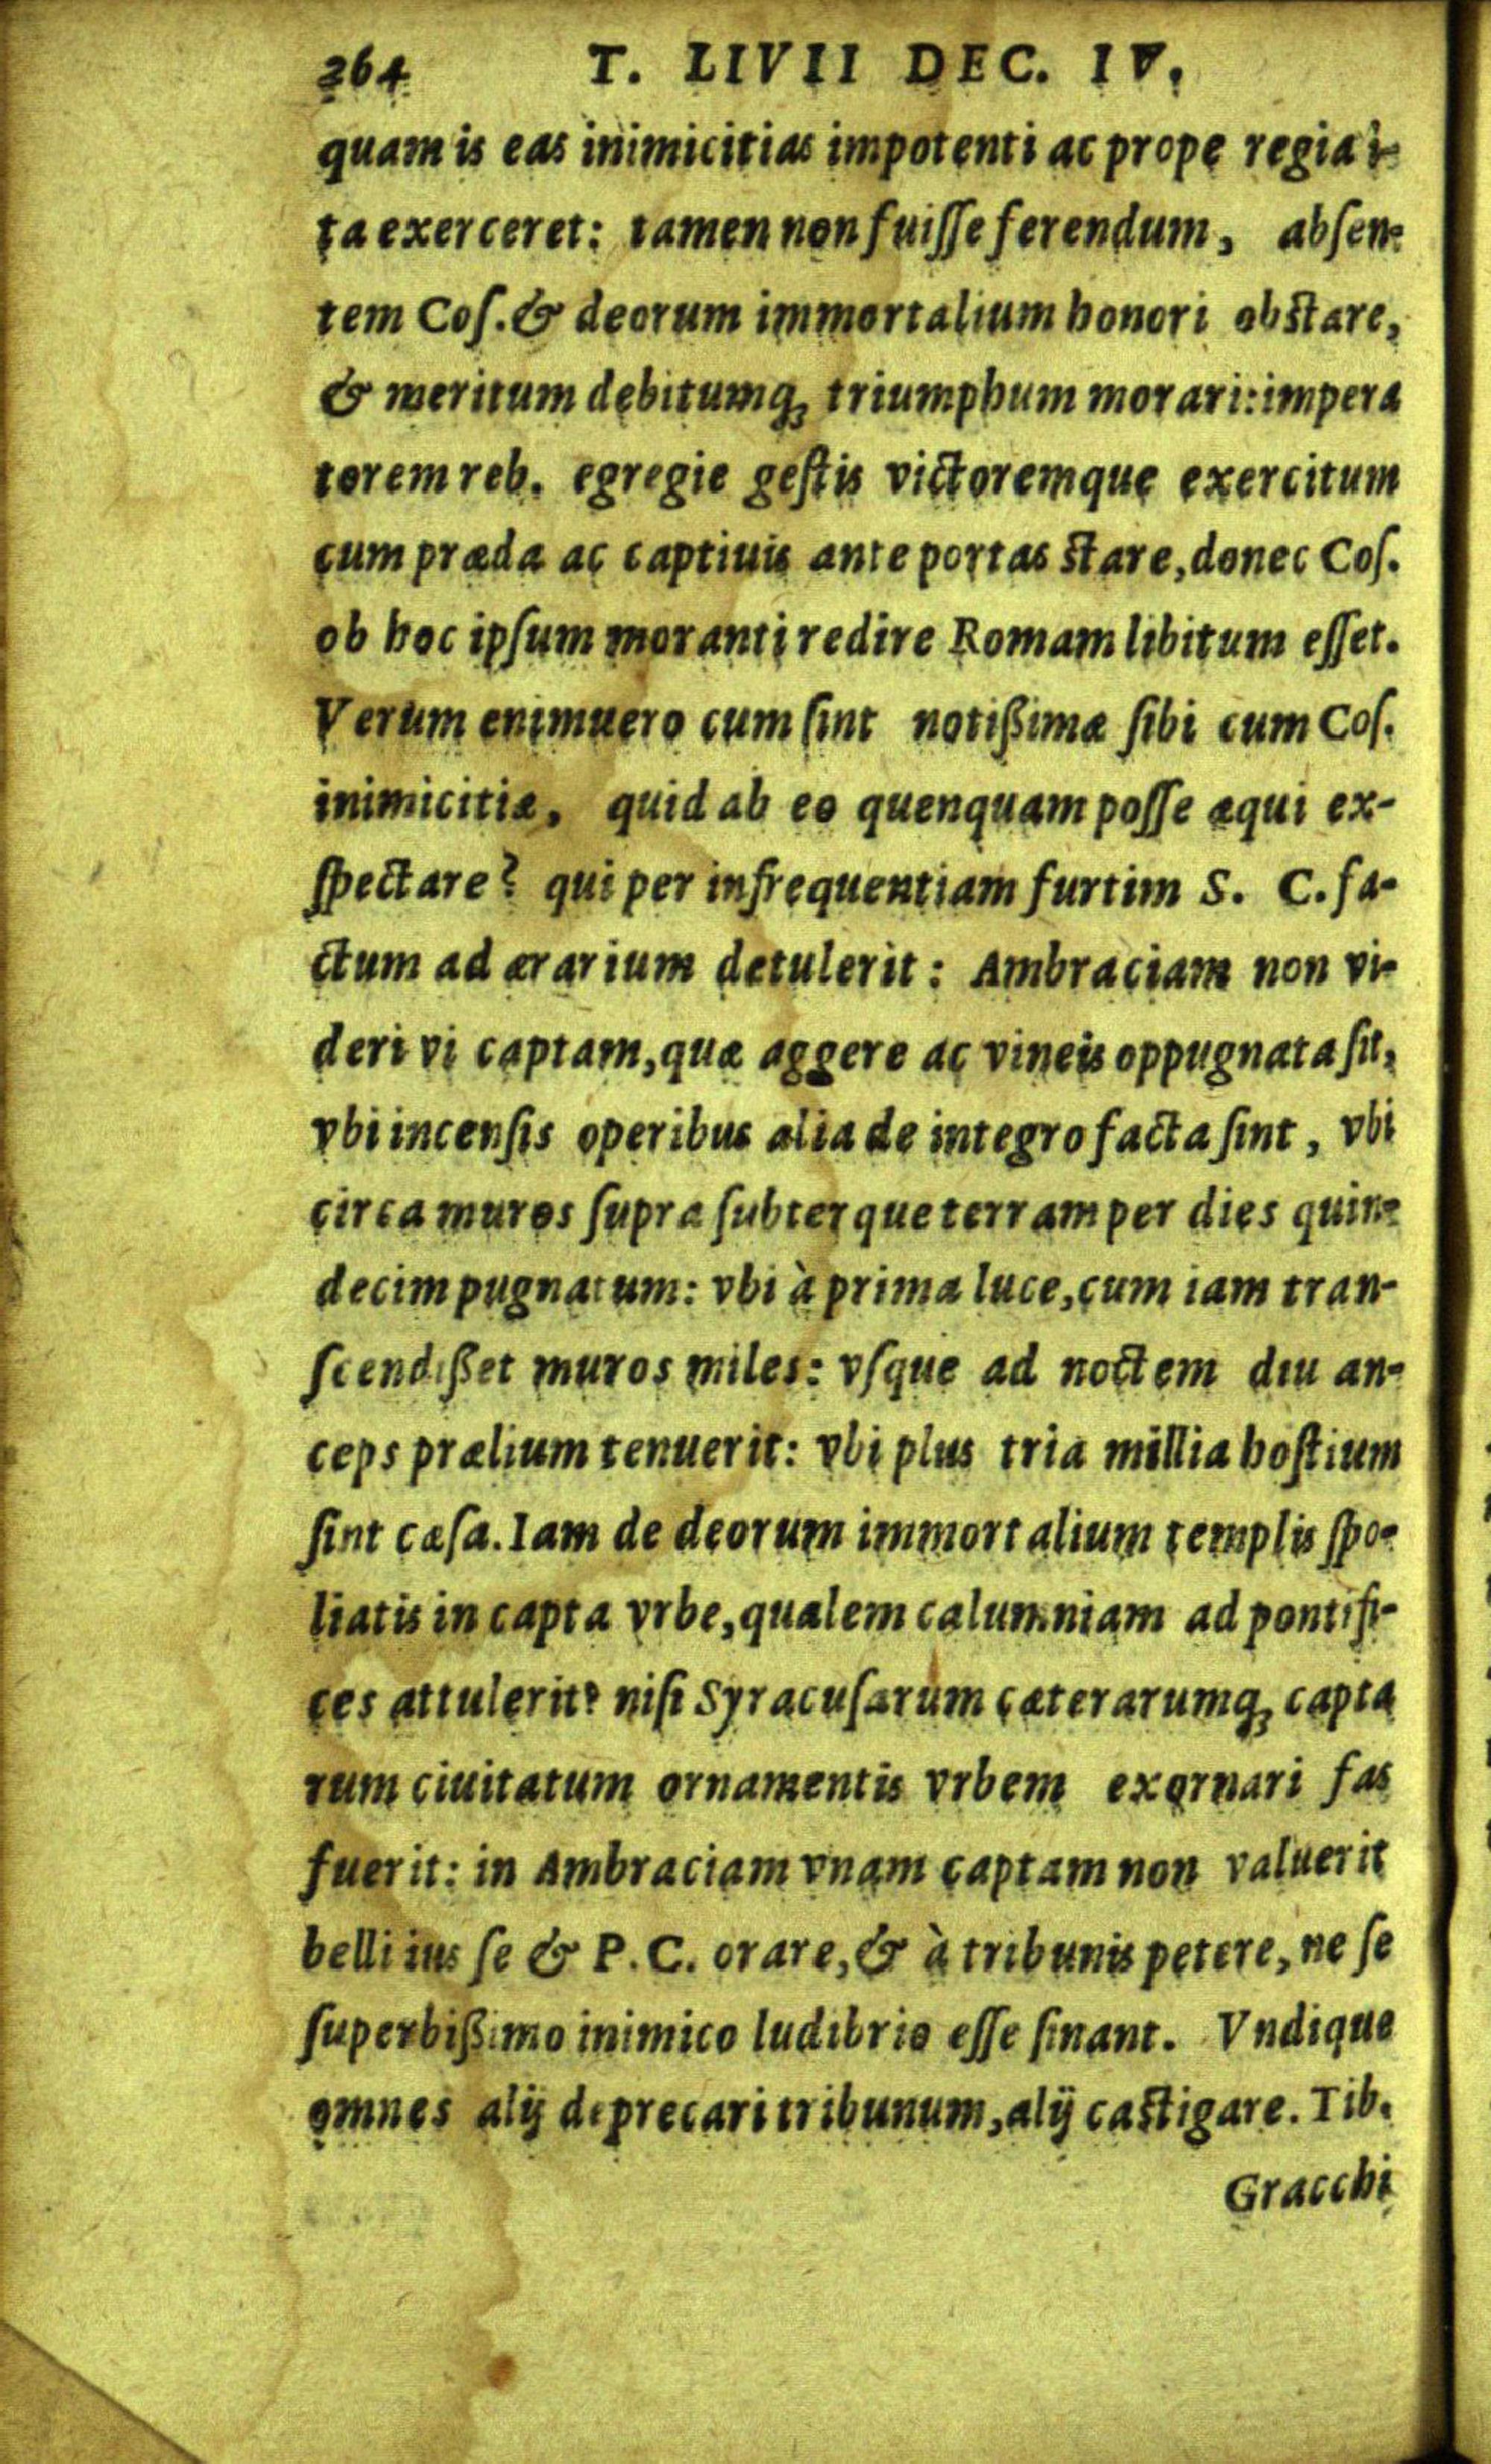 364 T. LIVII DEC. IV.
quam is eas inimicitias impotenti ac prope regia i-
ra exerceret: tamen non fuiſſe ferendum, abſen-
tem Coſ. & deorum immortalium honori obſtare,
& meritum debitumq; triumphum morari: impera
torem reb. egregie geſtis victoremque exercitum
cum præda ac captiuis ante portas ſtare, donec Coſ.
ob hoc ipſum moranti redire Romam libitum eſſet.
Verum enimuero cum ſint notißimæ ſibi cum Coſ.
inimicitiæ, quid ab eo quenquam poſſe æqui ex-
ſpectare? qui per infrequentiam furtim S. C. fa-
ctum ad ærarium detulerit: Ambraciam non vi-
deri vi captam, quæ aggere ac vineis oppugnata ſit,
vbi incenſis operibus alia de integro facta ſint, vbi
circa muros ſupra ſubterque terram per dies quin-
decim pugnatum: vbi à prima luce, cum iam tran-
ſcendißet muros miles: vſque ad noctem diu an-
ceps prælium tenuerit: vbi plus tria millia hoſtium
ſint cæſa. Iam de deorum immortalium templis ſpo-
liatis in capta vrbe, qualem calumniam ad pontifi-
ces attulerit? niſi Syracuſarum cæterarumq; capta
rum ciuitatum ornamentis vrbem exornari fas
fuerit: in Ambraciam vnam captam non valuerit
belli ius ſe & P. C. orare, & à tribunis petere, ne ſe
ſuperbißimo inimico ludibrio eſſe ſinant. Vndique
omnes alij deprecari tribunum, alij caſtigare. Tib.
Gracchi